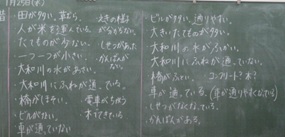 1月25日(水)
昔
田が多い、草むら、
人が米を運んでいる
たてものが少ない。
一つ一つが小さい
大和川の水があさい。
大和川にふねが通っていた。
橋がほそい。
ビルがない。
車が通っていない
しせつがあった
かんばんがない。
電車が走って
木でできている
ビルが多い、通りやすい。
大きいたてものが多い。
大和川の水がふかい。
大和川にふねが通っていない。
橋がふとい。コンクリート?木?
車が通っている。(車が通りやすくなっている)
しせつがなくなっている。
かんばんがある。